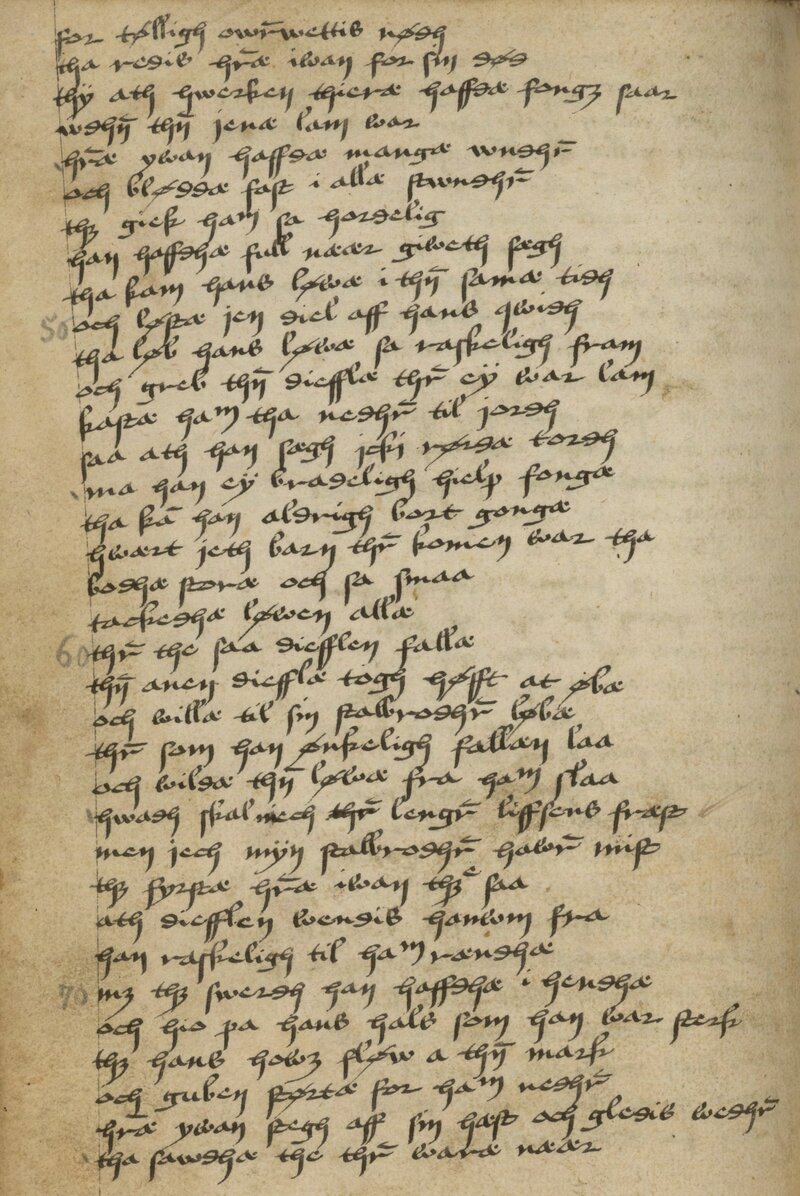 for tølligh owr̄wettis nødh
tha redis hr̄æ iwan for sin død
thÿ ath hwerken thieræ haffdæ fongꝫ saar
wdhn̄ thn̄ jenæ lam war
hr̄æ ywan haffdæ mangæ wndhr̄
och bløddæ fast i allæ stwndhr̄
thꝫ giek ham sa hordelig
han haffdhæ full næær giweth sægh
tha kam hans løwæ i thn̄ samæ tidh
50 och løstæ jen diel aff hans qwidh
tha løb hans løwæ sa raskeligh fram
och greb thn̄ diefflæ thr̄ eÿ war lam
kastæ ham tha nedhr̄ til jordh
saa ath han sægh icki rørdæ tordh
ma han eÿ bradeligh hielp fongæ
tha kā han aldrigh bort gongæ
hwært jeth barn thr̄ komen war tha
bodhæ storæ och sa smaa
tackedhæ løwen allæ
60 thr̄ the saa diefflen fallæ
thn̄ anen diefflæ togh høfft at øbæ
och willæ til sin stalbrodhr̄ løbæ
thr̄ som han ønkeligh fallæn laa
och wildæ thn̄ løwæ fra ham slaa
hwadh skal mech thr̄ lengr̄ liffsens fræst
men jech mÿn stalbrodhr̄ hawr̄ mist
thꝫ fyrstæ hr̄æ iwan thꝫ saa
ath diefflen wendis hanwom fra
han raskeligh til ham rændhæ
70 mꝫ thꝫ swerdh han haffdhæ i hendhæ
och hio pa hans hals som han war sterk
thꝫ hans howꝫ fløw a thn̄ mark
och guben størtæ for ham nedhr̄
hr̄æ ywan stegh aff sin hæst och gledis wedhr̄
tha sawdhæ the thr̄ waræ næær